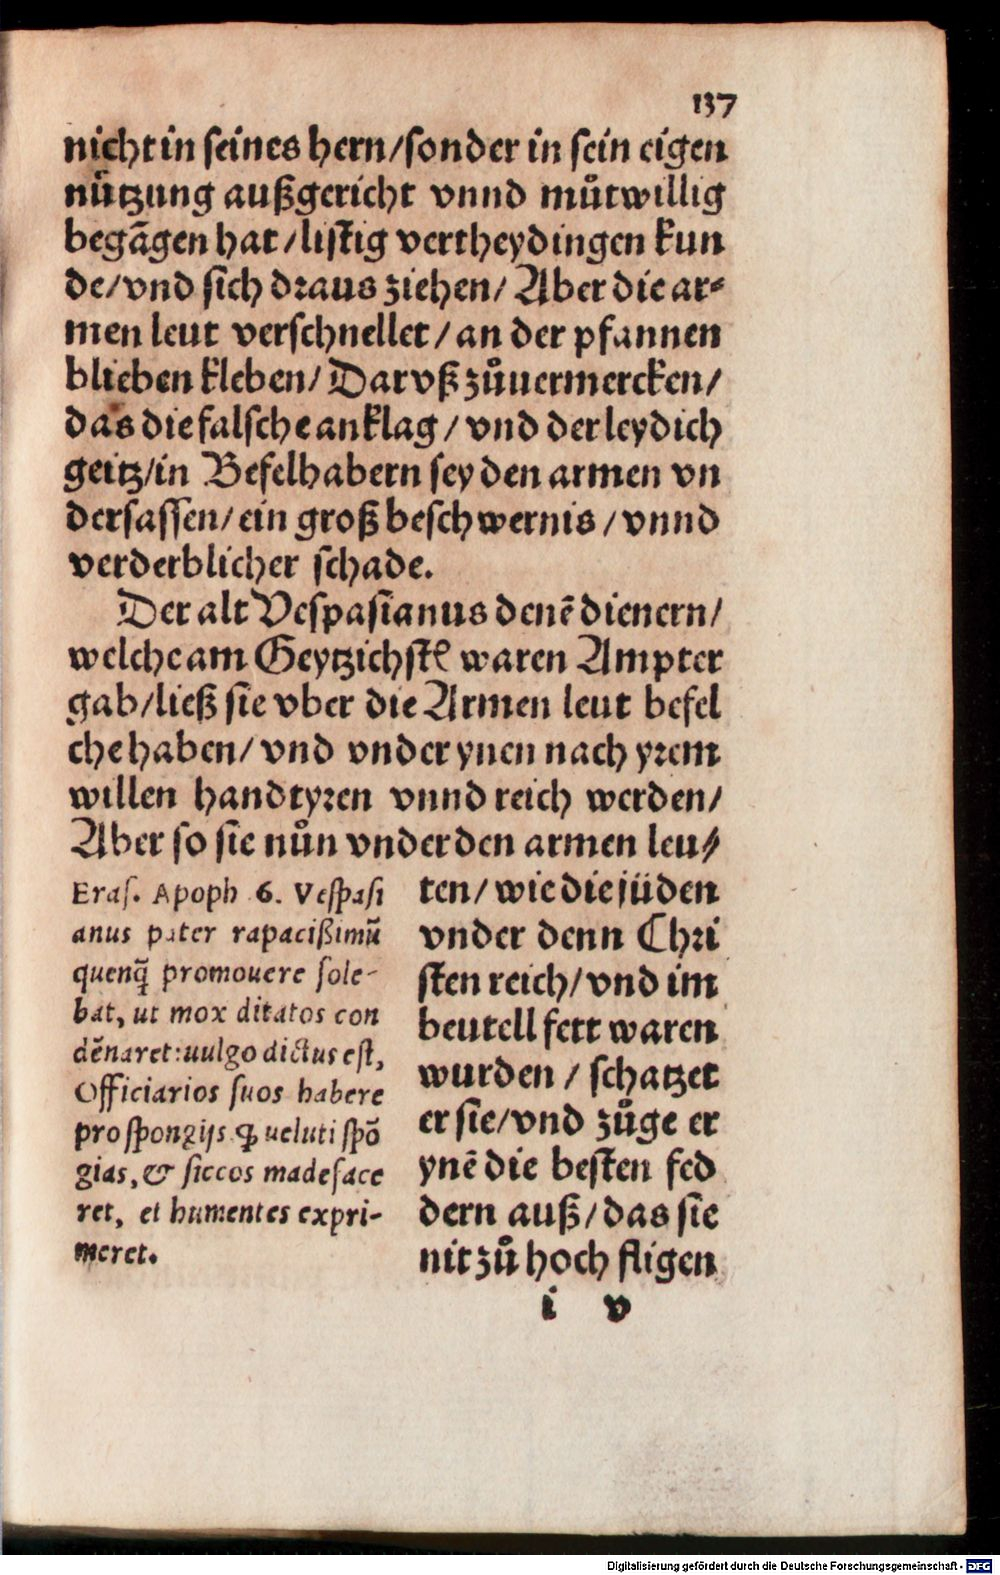 137
nicht in seines hern/sonder in sein eigen
nützung außgericht vnnd můtwillig
begãgen hat/listig vertheydingen kun
de/vnd sich draus ziehen/Aber die ar-
men leut verschnellet/an der pfannen
blieben kleben/Dar vß zůuermercken/
das die falsche anklag/vnd der leydich
geitz/in Befelhabern sey den armen vn
dersassen/ein groß beschwernis/vnnd
verderblicher schade.
Der alt Vespasianus denẽ dienern/
welche am Geytzichstẽ waren Ampter
gab/ließ sie vber die Armen leut befel
che haben/vnd vnder ynen nach yrem
willen handtyren vnnd reich werden/
Aber so sie nůn vnder den armen leu-
ten/wie die jüden
vnder denn Chri
sten reich/vnd im
beutell fett waren
wurden/schatzet
er sie/vnd zůge er
ynẽ die besten fed
dern auß/das sie
nit zů hoch fligen
Eras. Apoph 6. Vespasi
anus pater rapacißimũ
quenq̃ promouere sole-
bat, ut mox ditatos con
dẽnaret: uulgo dictus est,
Officiarios suos habere
pro spongijs ꝙ ueluti spõ
gias, & siccos madeface
ret, et humentes expri-
meret.
i v
Digitalisierung gefördert durch die Deutsche Forschungsgemeinschaft - DFG